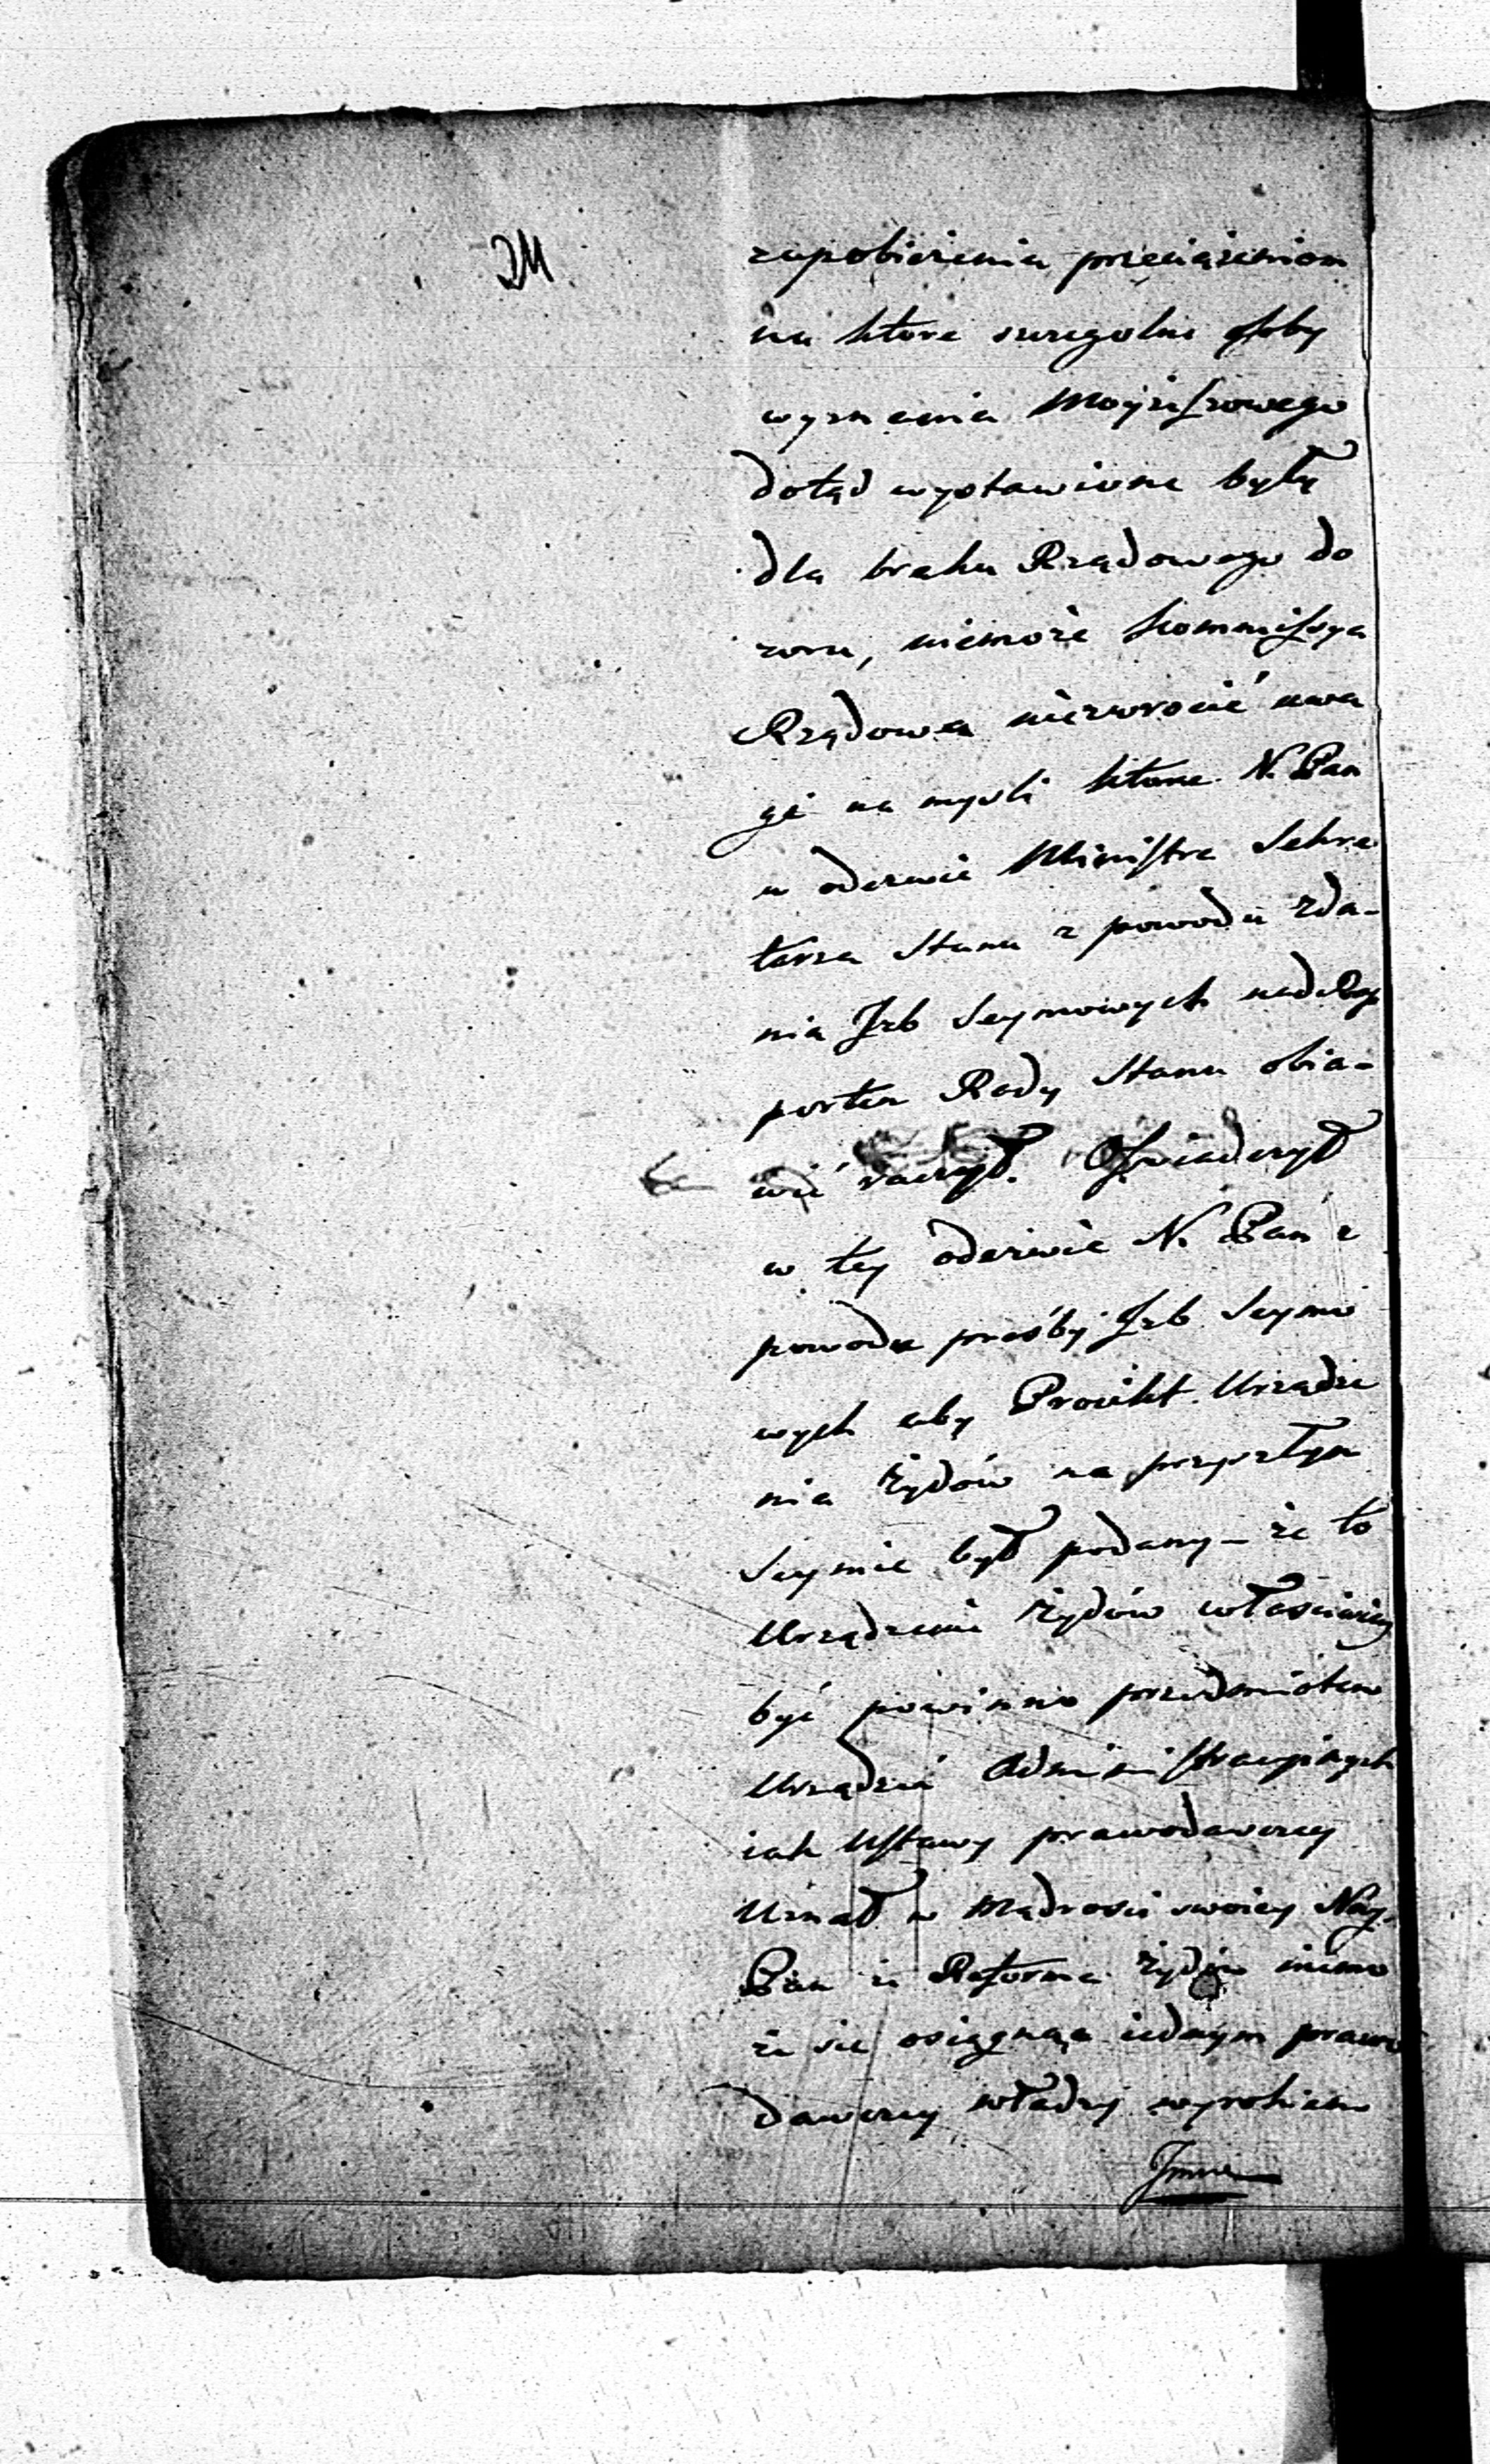 211
zapobieżenia przeciążeniom
na które szczegolne osoby
wyznania Moyżeszowego
dotąd wystawione były
dla braku Rządowego do
zoru, niemoże Kommissya
Rządowa niezwrocić uwa
gi na mysli które N. Pan
w odezwie Ministra Sekre
tarza Stanu z powodu zda-
nia Izb Seymowych nad Rap
portem Rady Stanu obia-
wić raczył. Oświadczył
w tey odezwie N. Pan z
powodu prośby Izb Seymo
wych aby Proiekt Urządze
nia Żydów na przyszłym
Seymie był podany – że to
Urządzenie Żydów właściwiey
być powinno przedmiotem
Urządzeń Administracyinych
iak Ustawy prawodawczey
Uznał w Mądrości swoiey Nay.
Pan że Reforma Żydów niemo
że sie osiągnąć iednym prawo
dawczey władzy wyrokiem
Inne